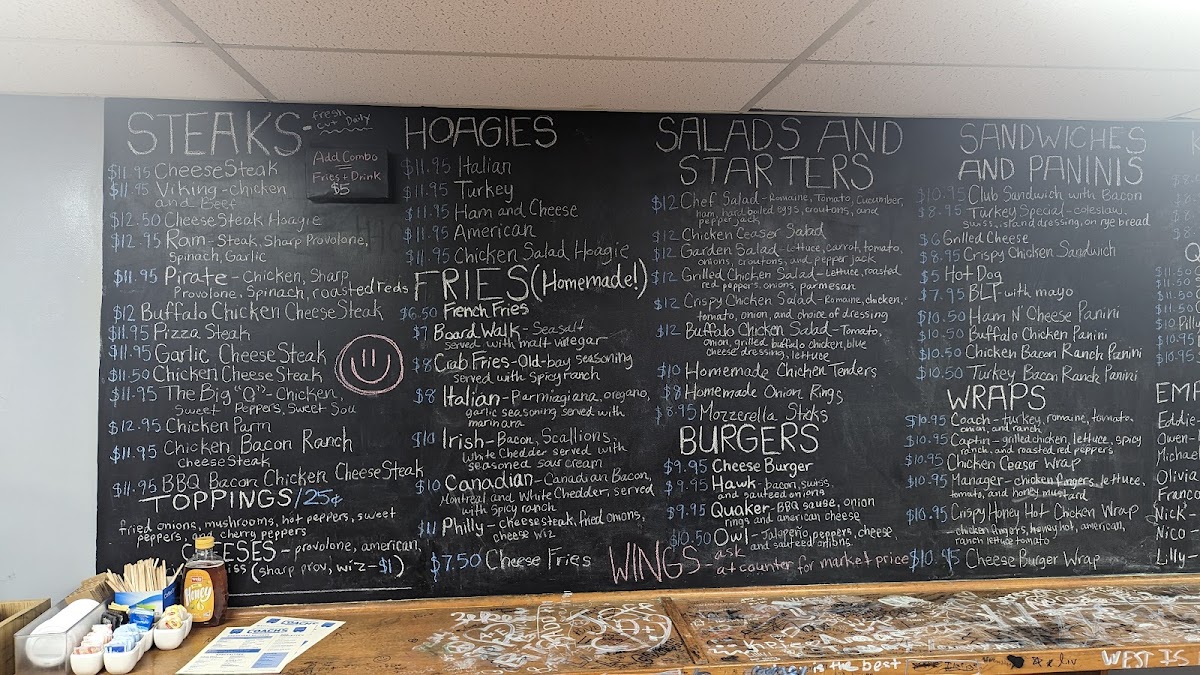 STEAKS- fresh cut Daily
Add Combo
Fries + Drink
$5
$11.95 CheeseSteak
$11.95 Viking - chicken
and Beef
$12.50 CheeseSteak Hoagie
$12.95 Ram - Steak, Sharp Provolone,
Spinach, Garlic
$11.95 Pirate - Chicken, Sharp
Provolone, Spinach, roasted reds
$12 Buffalo Chicken CheeseSteak
$11.95 Pizza Steak
$11.95 Garlic CheeseSteak
$11.50 Chicken CheeseSteak
$11.95 The Big "Q" - Chicken,
Sweet Peppers, Sweet Sou
$12.95 Chicken Parm
$11.95 Chicken Bacon Ranch
cheeseSteak
$11.95 BBQ Bacon Chicken CheeseSteak
TOPPINGS/25¢
fried onions, mushrooms, hot peppers, sweet
peppers, and cherry peppers
- provolone, american,
(sharp prov, wiz-$1)
HOAGIES
$11.95 Italian
$11.95 Turkey
$11.95 Ham and Cheese
$11.95 American
$11.95 Chicken Salad Hoagie
FRIES (Homemade!)
$6.50 French Fries
$7 Board Walk - Seasalt
served with malt vinegar
$8 Crab Fries - Old-bay seasoning
served with spicy ranch
$8 Italian - Parmiagiana, oregano,
garlic seasoning served with
marinara
$10 Irish - Bacon, Scallions,
White Chedder served with
seasoned sour cream
$10 Canadian - Canadian Bacon,
Montreal and White Chedder, served
with spicy ranch
$11 Philly - cheesesteak, fried onions,
cheese wiz
$7.50 Cheese Fries
SALADS AND
STARTERS
$12 Chef Salad - Romaine, Tomato, Cucumber,
ham, hard boiled eggs, croutons, and
pepper jack
$12 Chicken Ceaser Salad
$12 Garden Salad - Lettuce, carrot, tomato,
onions, croutons, and pepper jack
$12 Grilled Chicken Salad - Lettuce, roasted
red peppers, onions, parmesan
$12 Crispy Chicken Salad - Romaine, chicken,
tomato, onion, and choice of dressing
$12 Buffalo Chicken Salad - Tomato,
onion, grilled buffalo chicken, blue
cheese dressing, lettuce
$10 Homemade Chicken Tenders
$8 Homemade Onion Rings
$8.95 Mozzerella Sticks
BURGERS
$9.95 Cheese Burger
$9.95 Hawk - bacon, swiss,
and sauteed onions
$9.95 Quaker - BBQ sause, onion
rings and american cheese
$10.50 Owl - Jalapeño peppers, cheese
and sauteed onions
WINGS - ask at counter for market price
SANDWICHES
AND PANINIS
$10.95 Club Sandwich with Bacon
$8.95 Turkey Special - coleslaw,
Swiss, island dressing, on rye bread
$6 Grilled Cheese
$8.95 Crispy Chicken Sandwich
$5 Hot Dog
$7.95 BLT with mayo
$10.50 Ham N' Cheese Panini
$10.50 Buffalo Chicken Panini
$10.50 Chicken Bacon Ranch Panini
$10.50 Turkey Bacon Ranch Panini
WRAPS
$10.95 Coach - turkey, romaine, tomato,
onion, and ranch
$10.95 Captin - grilled chicken, lettuce, spicy
ranch, and roasted red peppers
$10.95 Chicken Ceaser Wrap
$10.95 Manager - chicken fingers, lettuce,
tomato, and honey mustard
$10.95 Crispy Honey Hot Chicken Wrap
- chicken fingers, honey hot, american,
ranch lettuce tomato
$10.95 Cheese Burger Wrap
Eddie-
Owen-
Michael
Olivia
Nick-
Nico-
Lilly-
Honey
COACH'S
is the best
WEST IS